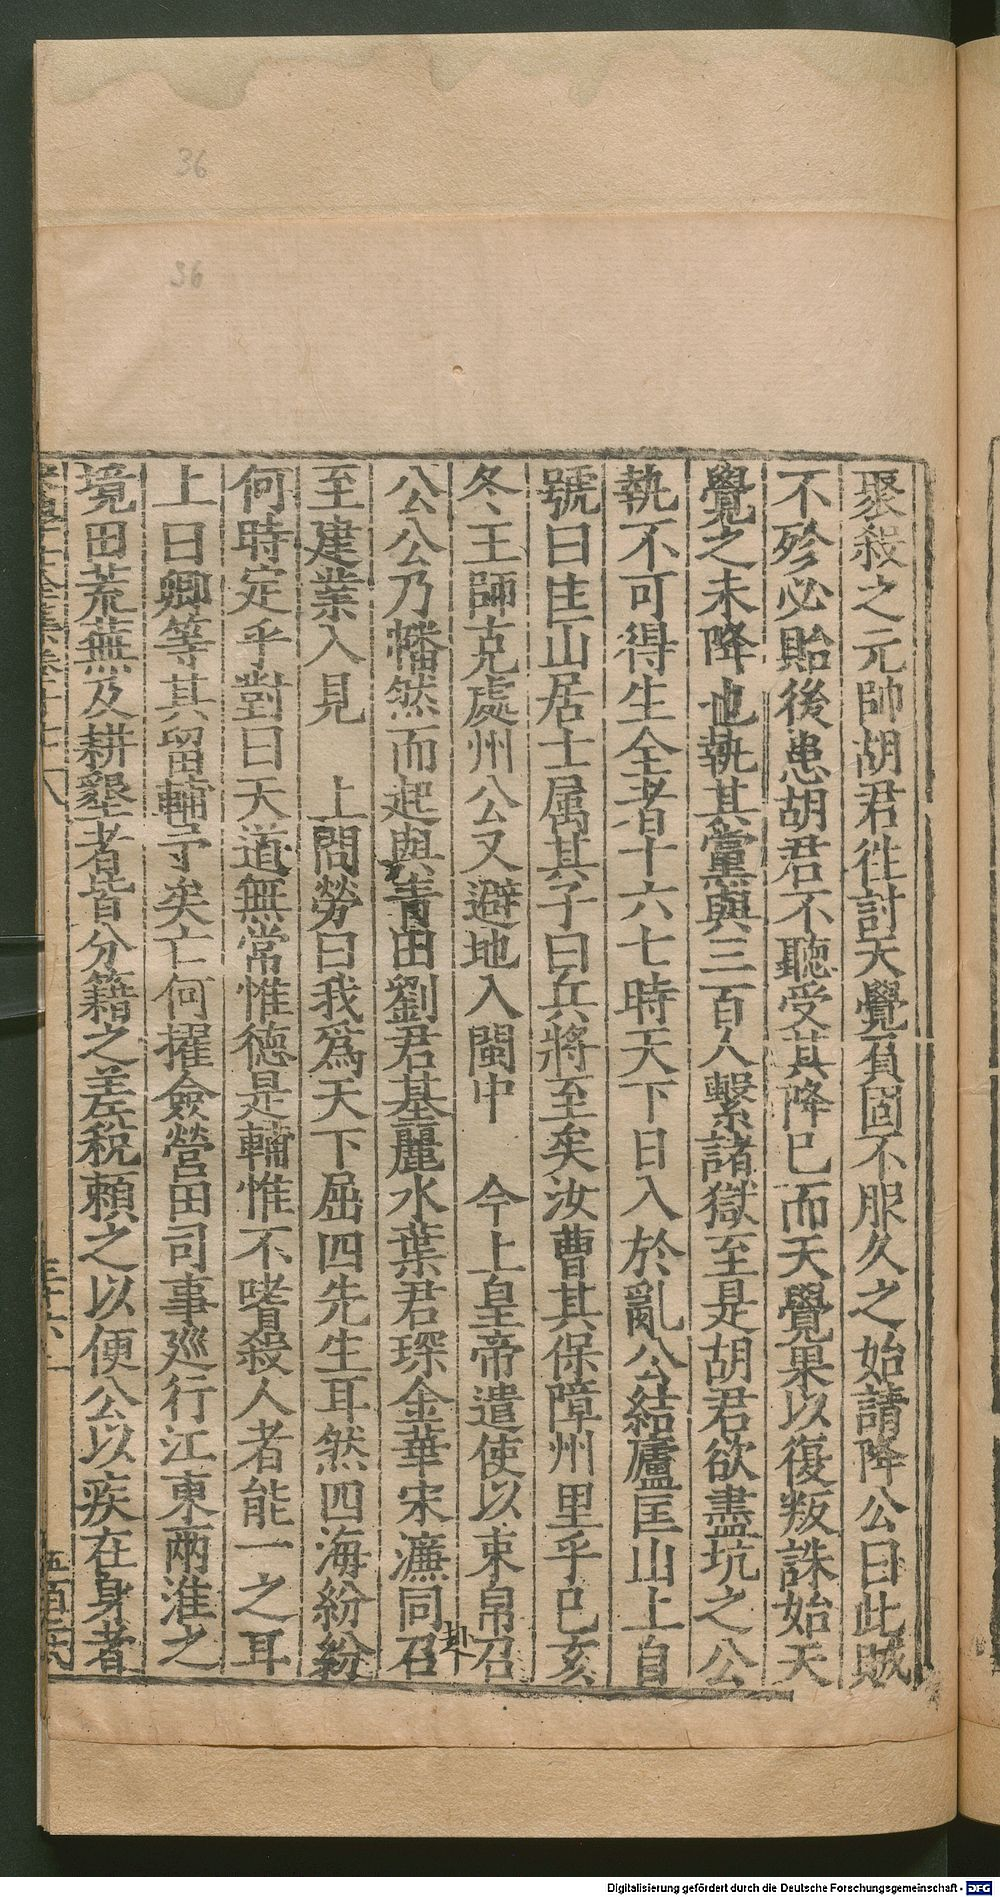 36
36
聚殺之元帥胡君徃討天覺負固不服久之始請降公曰此賊
不殄必貽後患胡君不聽受其降已而天覺果以復叛誅始天
覺之未降也執其黨與三百人繫諸獄至是胡君欲盡坑之公
執不可得生全者十六七時天下日入於亂公結廬匡山上自
號曰匡山居士属其子曰兵將至矣汝曹其保障州里乎已亥
冬王師克處州公又避地入閩中　今上皇帝遣使以束帛召
赴
公公乃幡然而起與青田劉君基麗水葉君琛金華宋濂同召
至建業入見　上問勞曰我爲天下屈四先生耳然四海紛紛
何時定乎對曰天道無常惟德是輔惟不嗜殺人者能一之耳
上曰卿等其留輔予矣亡何擢僉營田司事廵行江東兩淮之
境田荒蕪及耕墾者皆分籍之差税頼之以便公以疾在身者
Digitalisierung gefördert durch die Deutsche Forschungsgemeinschaft - DFG